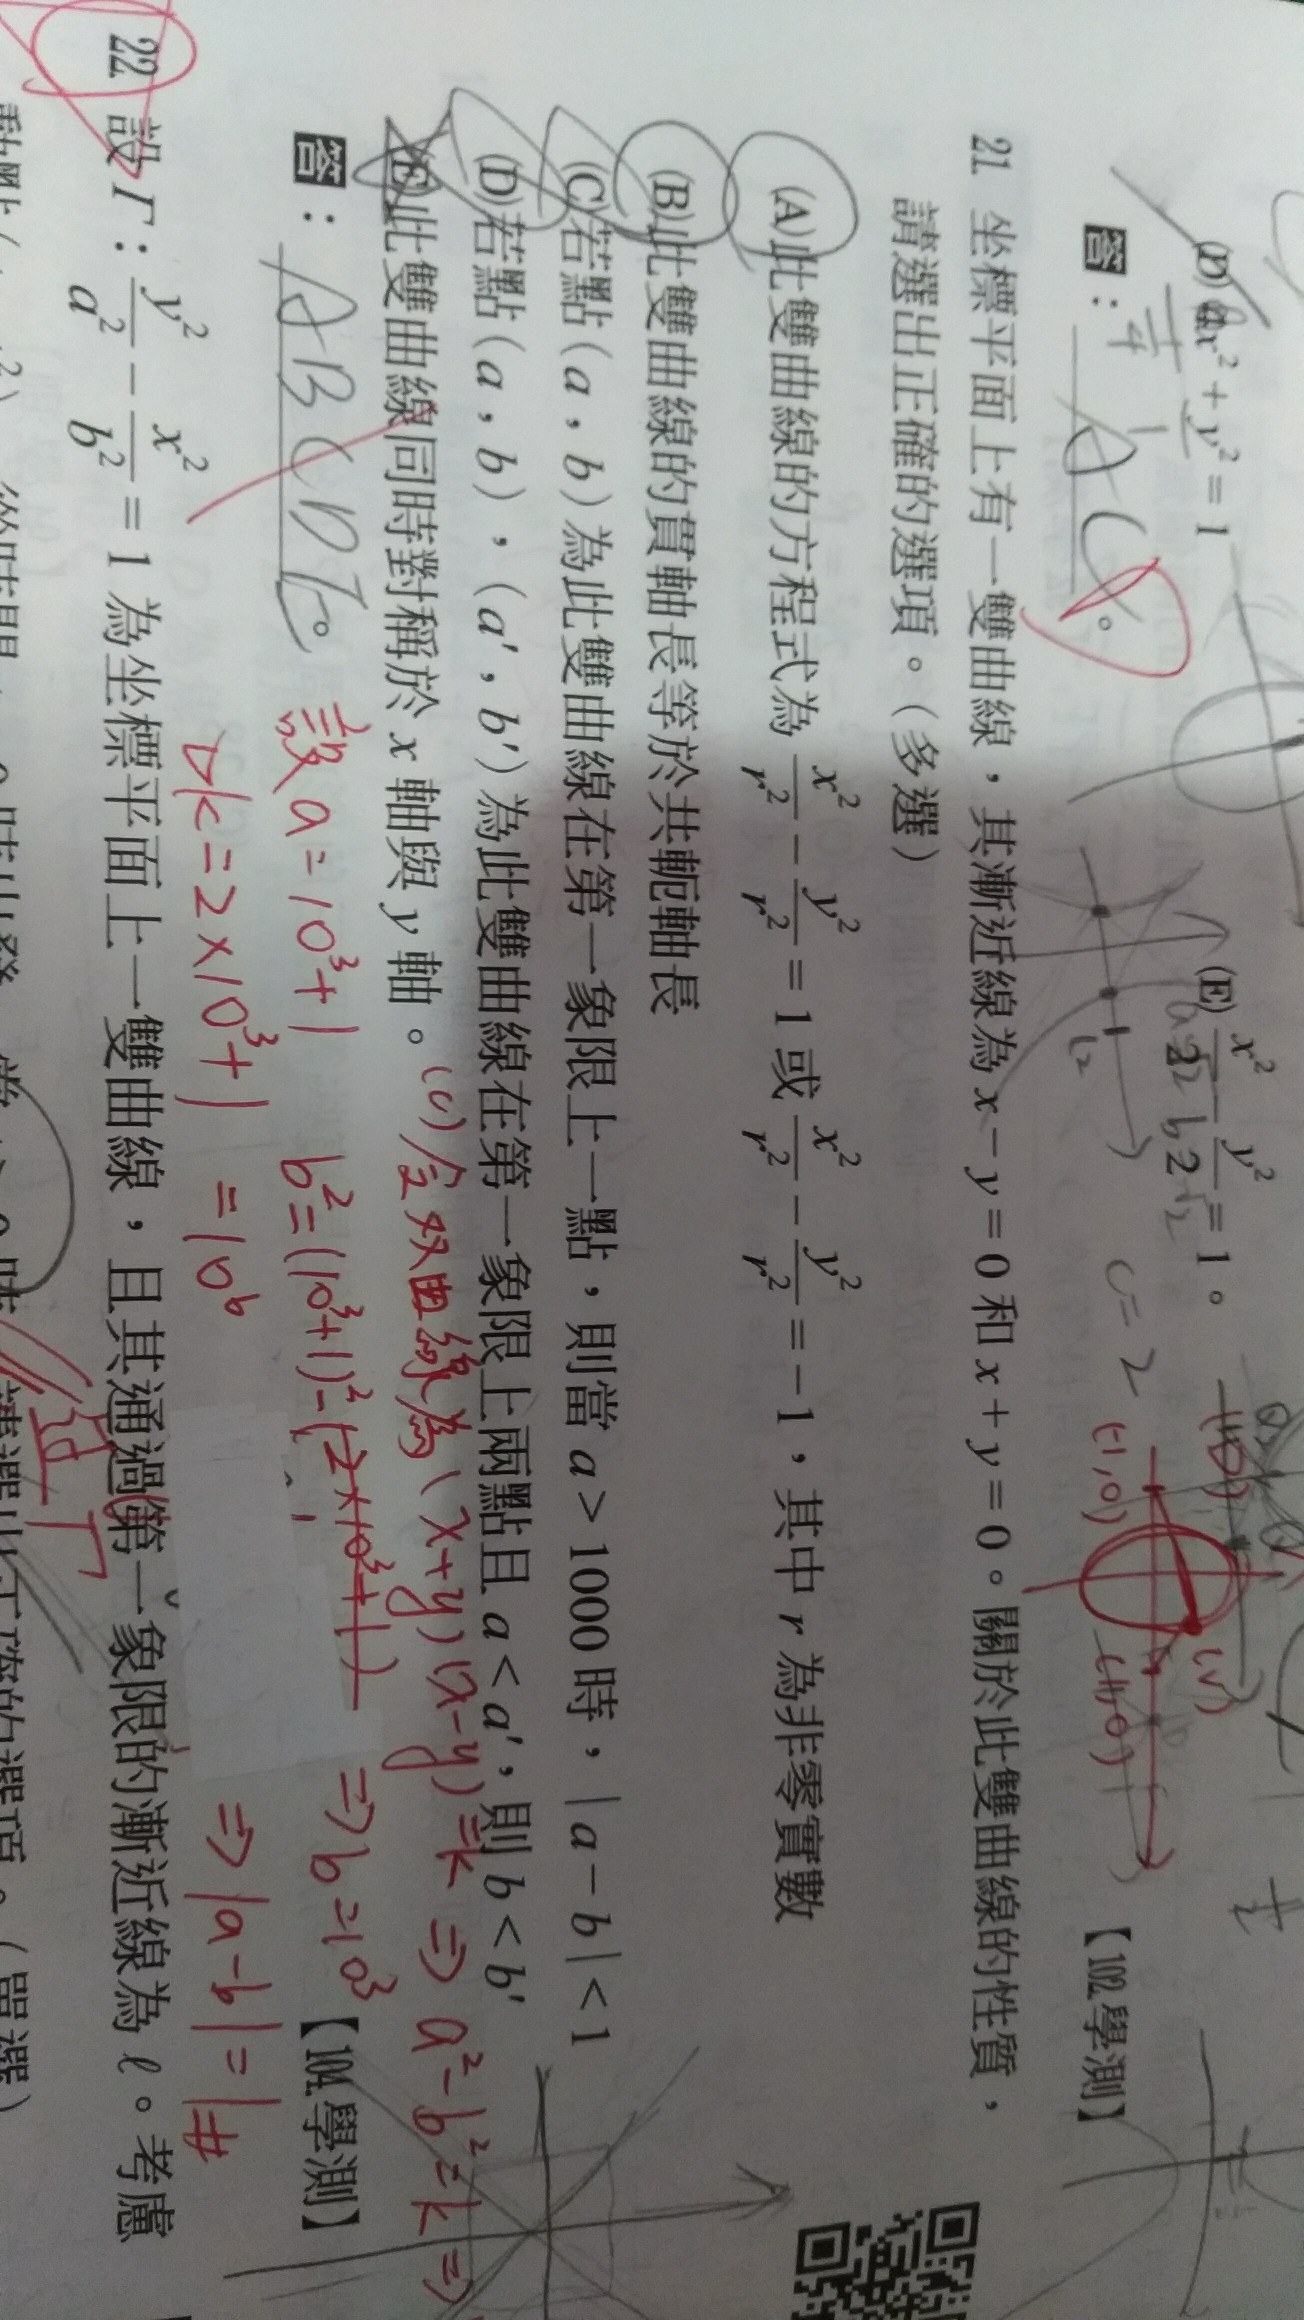 (D) 4x² + y² = 1
(E) x²/2 − y²/2 = 1。
a=√2 b=√2
c=2
(-1,0)
答：AC。
【102學測】
21. 坐標平面上有一雙曲線，其漸近線為 x − y = 0 和 x + y = 0。關於此雙曲線的性質，
請選出正確的選項。(多選)
(A)此雙曲線的方程式為 x²/r² − y²/r² = 1 或 x²/r² − y²/r² = −1，其中 r 為非零實數
(B)此雙曲線的貫軸長等於共軛軸長
(C)若點(a , b)為此雙曲線在第一象限上一點，則當 a > 1000 時，|a − b| < 1
(D)若點(a , b)，(a′ , b′)為此雙曲線在第一象限上兩點且 a < a′，則 b < b′
(E)此雙曲線同時對稱於 x 軸與 y 軸。
(C) 令双曲線為 (x+y)(x-y)=k ⇒ a²-b²=k ⇒
答：ABCDE。
【104學測】
設 a=10³+1 b²=(10³+1)²-(2×10³+1) ⇒ b=10³
k=2×10³+1 =10⁶ ⇒ |a-b|=1 #
22. 設 Γ：y²/a² − x²/b² = 1 為坐標平面上一雙曲線，且其通過第一象限的漸近線為 ℓ。考慮